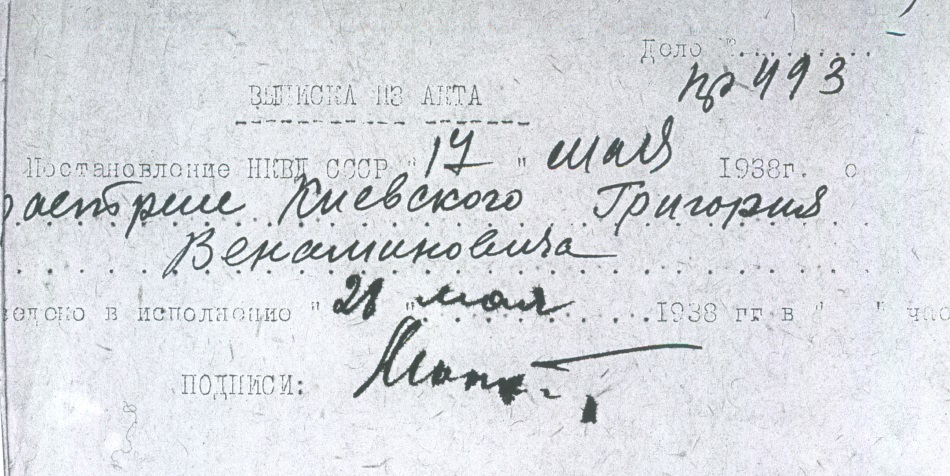 Дело №.........
пр 493
ВЫПИСКА ИЗ АКТА
Постановление НКВД СССР "17" мая 1938г. о
растреле Киевского Григория
Венаминовича
ведено в исполнение "28" мая 1938 гг в " " час
ПОДПИСИ: